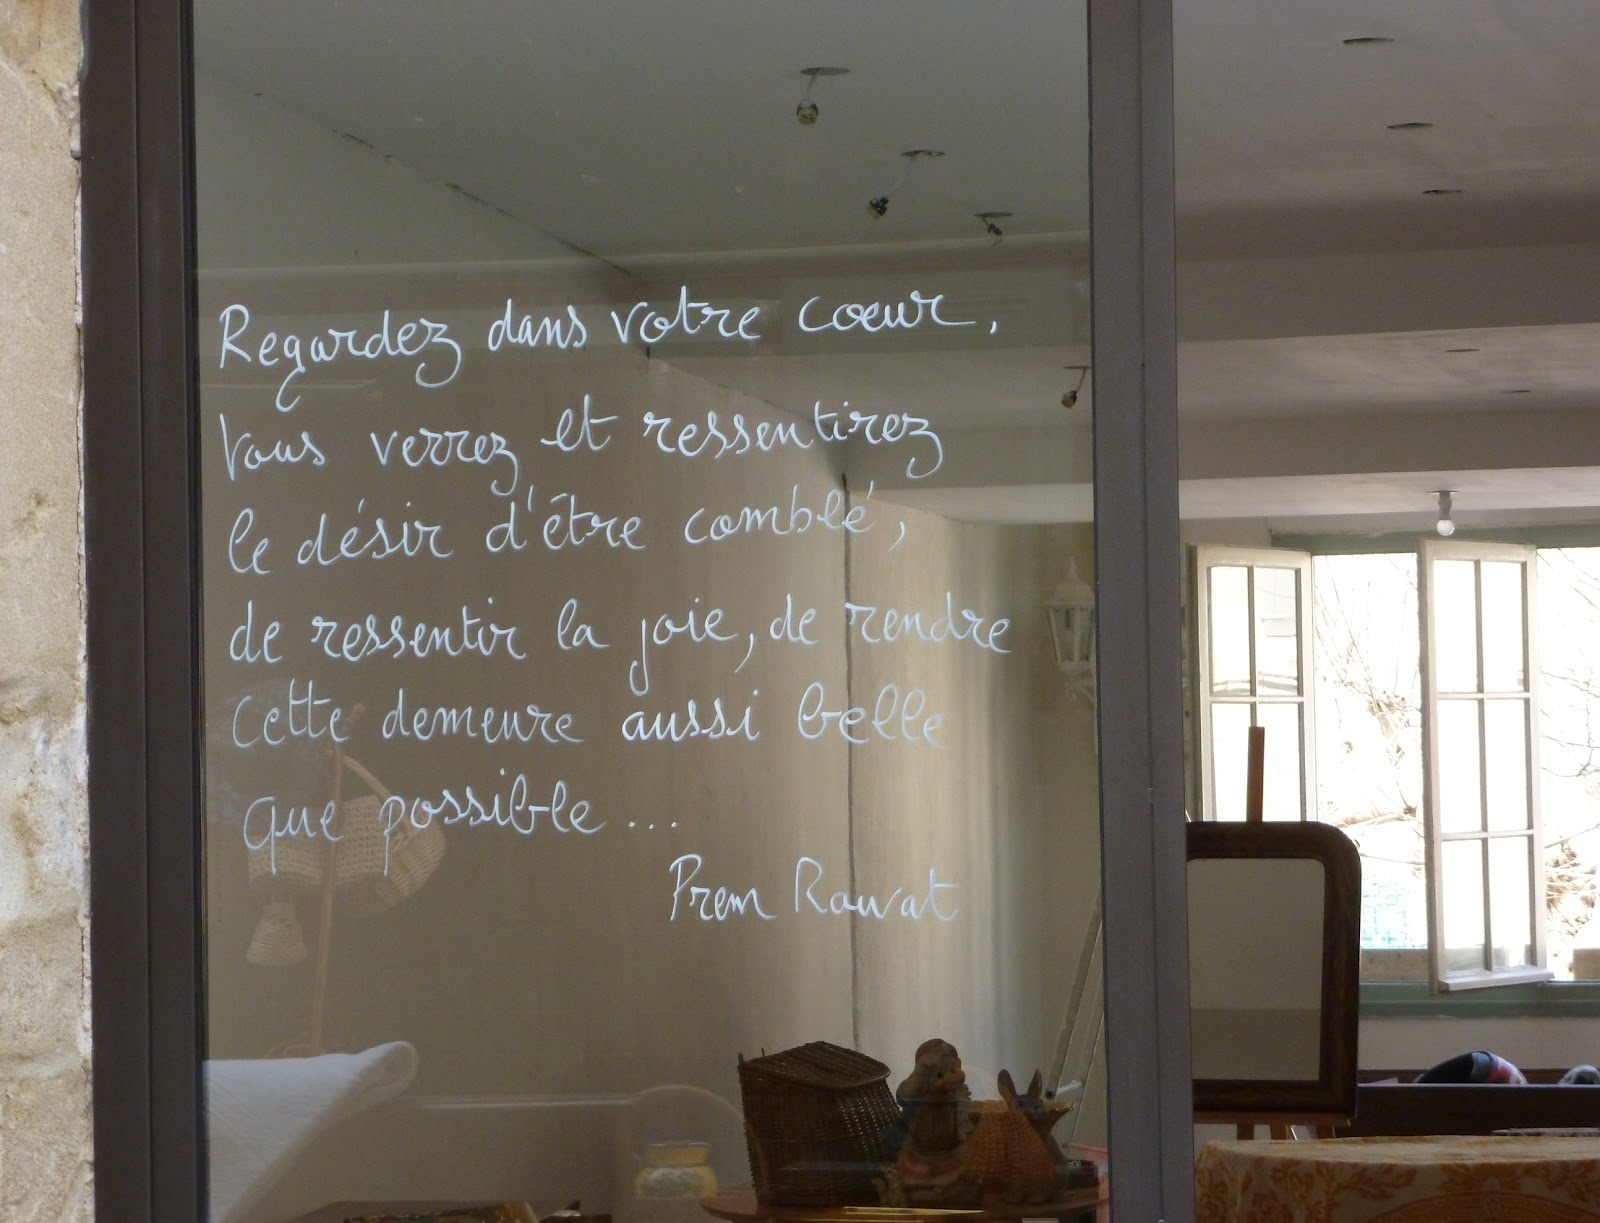 Regardez dans votre cœur.
Vous verrez et ressentirez
le désir d'être comblé,
de ressentir la joie, de rendre
cette demeure aussi belle
que possible...
Prem Rawat